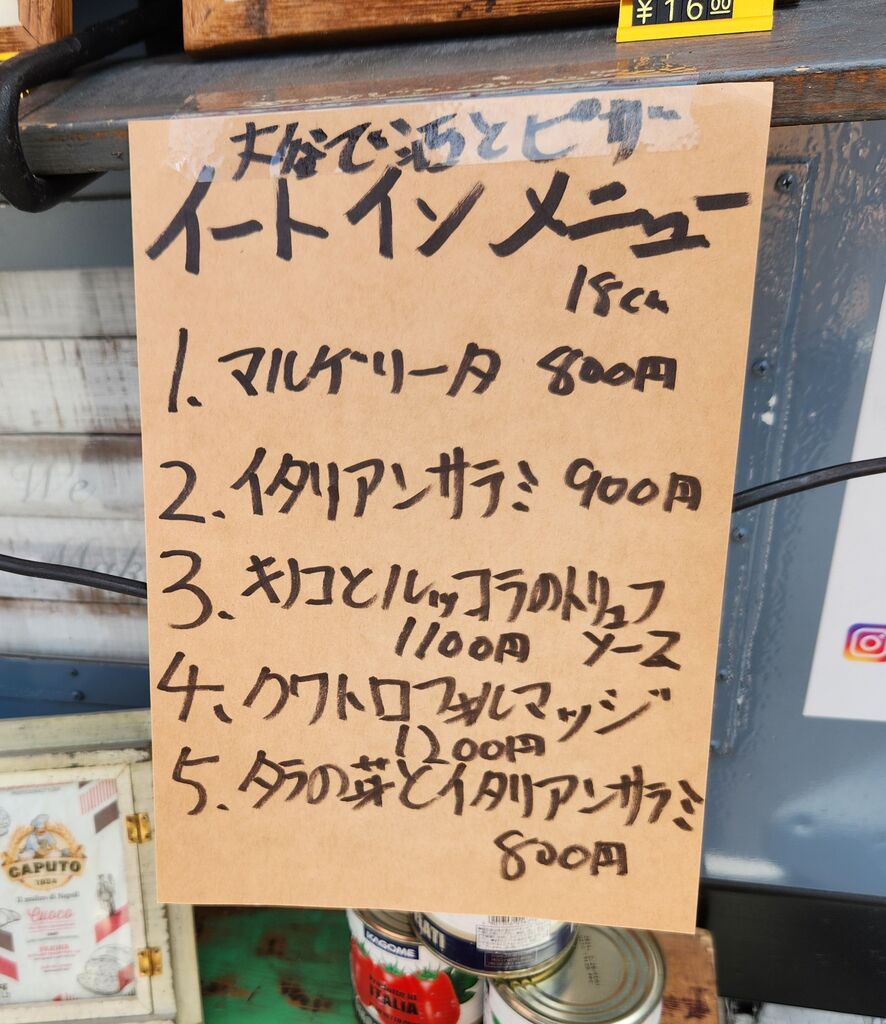 ¥1600
大谷で酒とピザ
イートイン メニュー
18cm
1. マルゲリータ 800円
2. イタリアンサラミ 900円
3. キノコとルッコラのトリュフ
1100円 ソース
4、クワトロフォルマッジ
1200円
5. タラの芽とイタリアンサラミ
800円
We
Make
CAPUTO
1924
Il mulino di Napoli
Cuoco
KAGOME
ITALIA
ATI